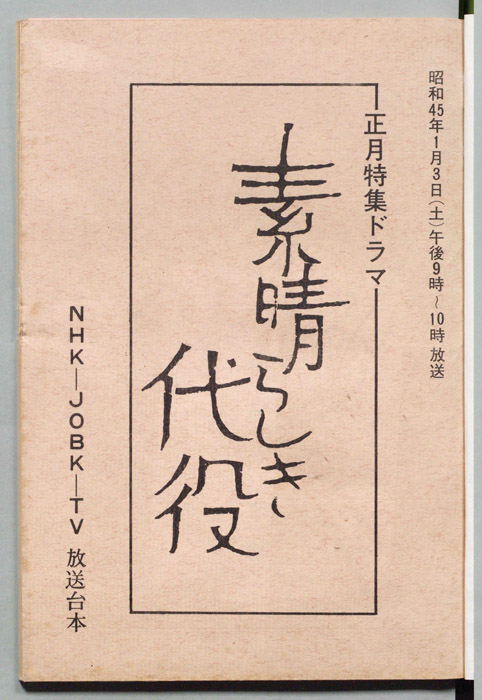 昭和45年1月3日(土)午後9時~10時 放送
正月特集ドラマ
素晴らしき
代役
NHK—JOBK—TV 放送台本